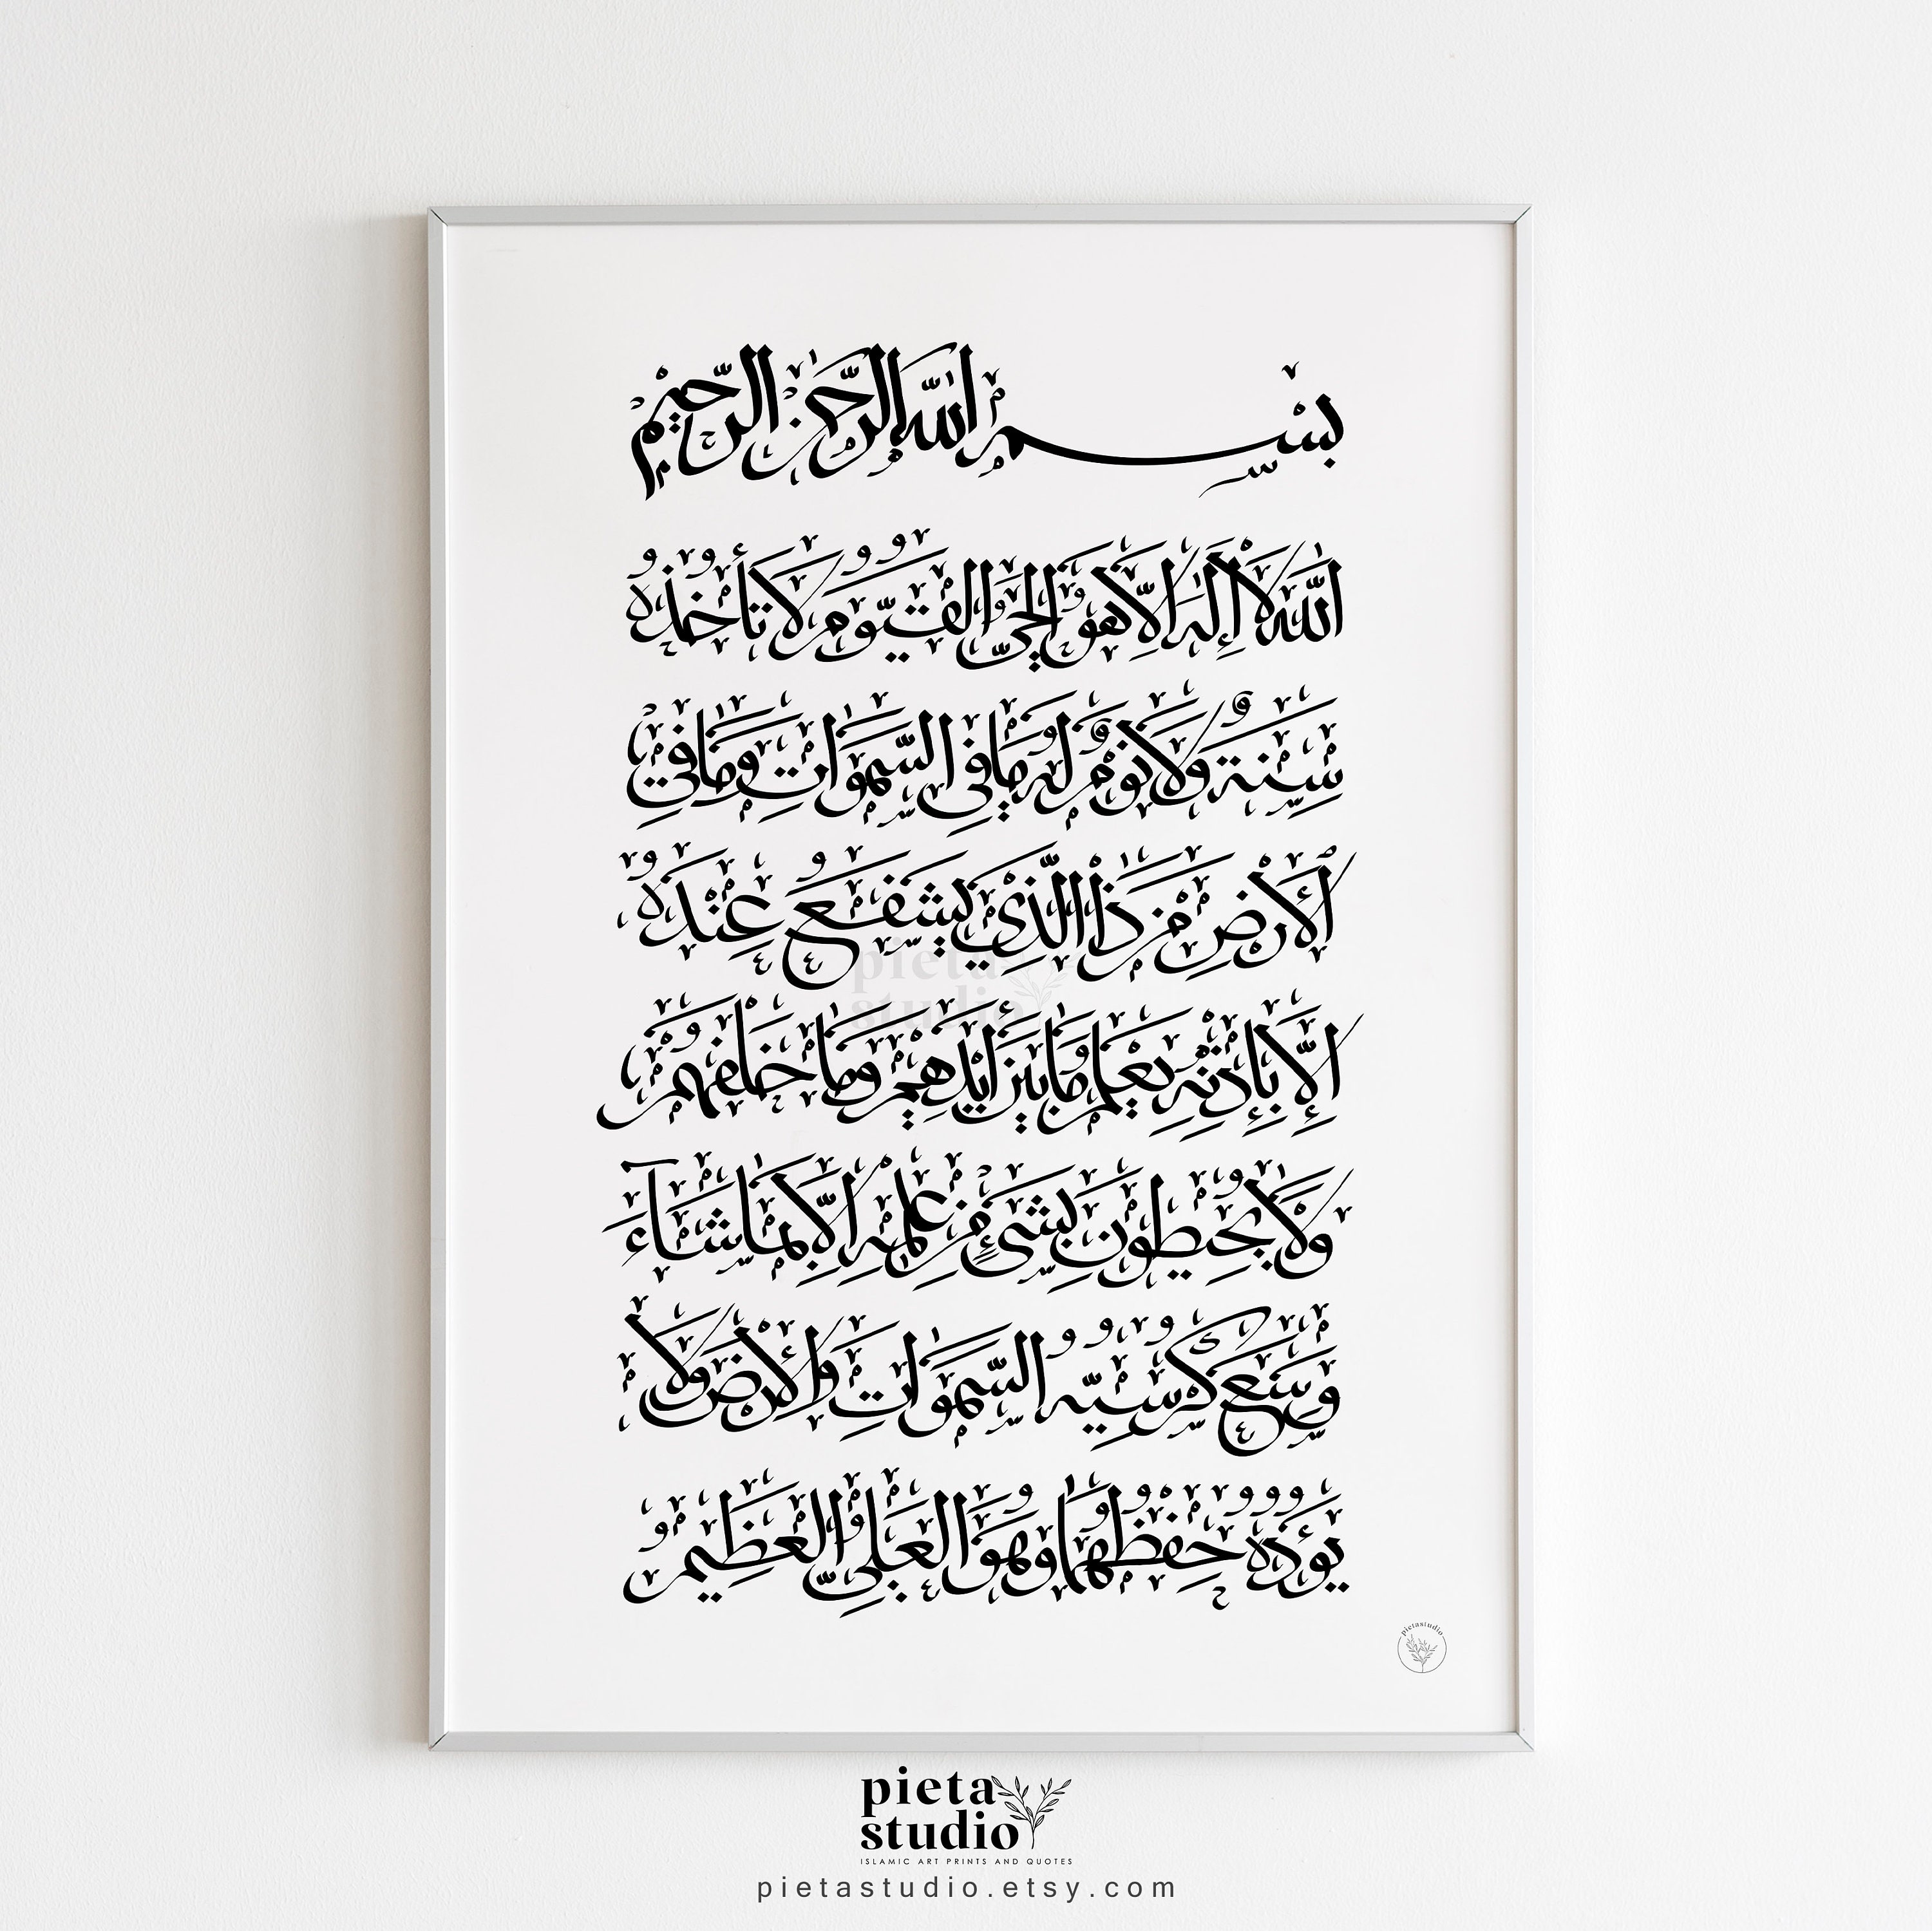 بِسْمِ اللَّهِ الرَّحْمَٰنِ الرَّحِيمِ
اللَّهُ لَا إِلَٰهَ إِلَّا هُوَ الْحَيُّ الْقَيُّومُ لَا تَأْخُذُهُ
سِنَةٌ وَلَا نَوْمٌ لَهُ مَا فِي السَّمَوَاتِ وَمَا فِي
ٱلْأَرْضِ مَنْ ذَا الَّذِي يَشْفَعُ عِنْدَهُ
إِلَّا بِإِذْنِهِ يَعْلَمُ مَا بَيْنَ أَيْدِيهِمْ وَمَا خَلْفَهُمْ
وَلَا يُحِيطُونَ بِشَيْءٍ مِنْ عِلْمِهِ إِلَّا بِمَا شَآءَ
وَسِعَ كُرْسِيُّهُ السَّمَوَاتِ وَالْأَرْضَ وَلَا
يَؤُدُهُ حِفْظُهُمَا وَهُوَ الْعَلِيُّ الْعَظِيمُ
pieta
studio
pietastudio
pieta
studio
ISLAMIC ART PRINTS AND QUOTES
pietastudio.etsy.com